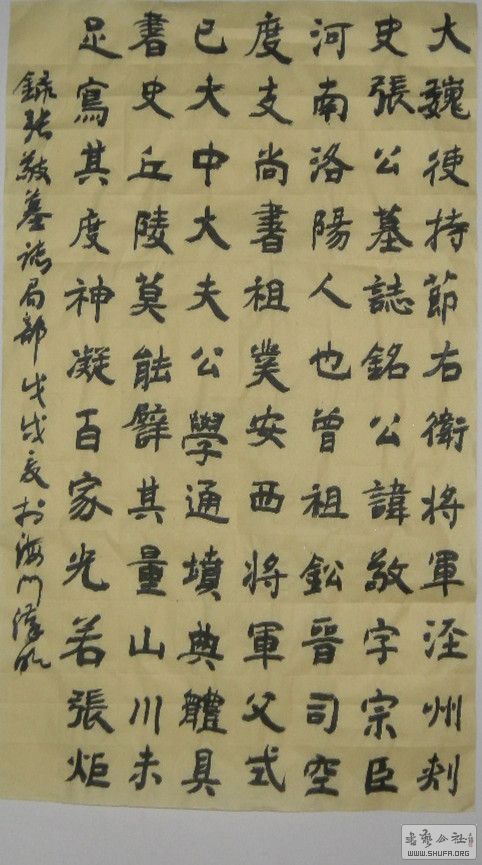 大魏使持節右衛將軍涇州刺
史張公墓誌銘公諱敬字宗臣
河南洛陽人也曾祖鈆晉司空
度支尚書祖業安西將軍父式
已大中大夫公學通墳典體具
書史丘陵莫能譬其量山川未
足寫其度神凝百家光若張炬
錄張敬墓誌局部戊戌夏於海門偉
书艺公社
WWW.SHUFA.ORG